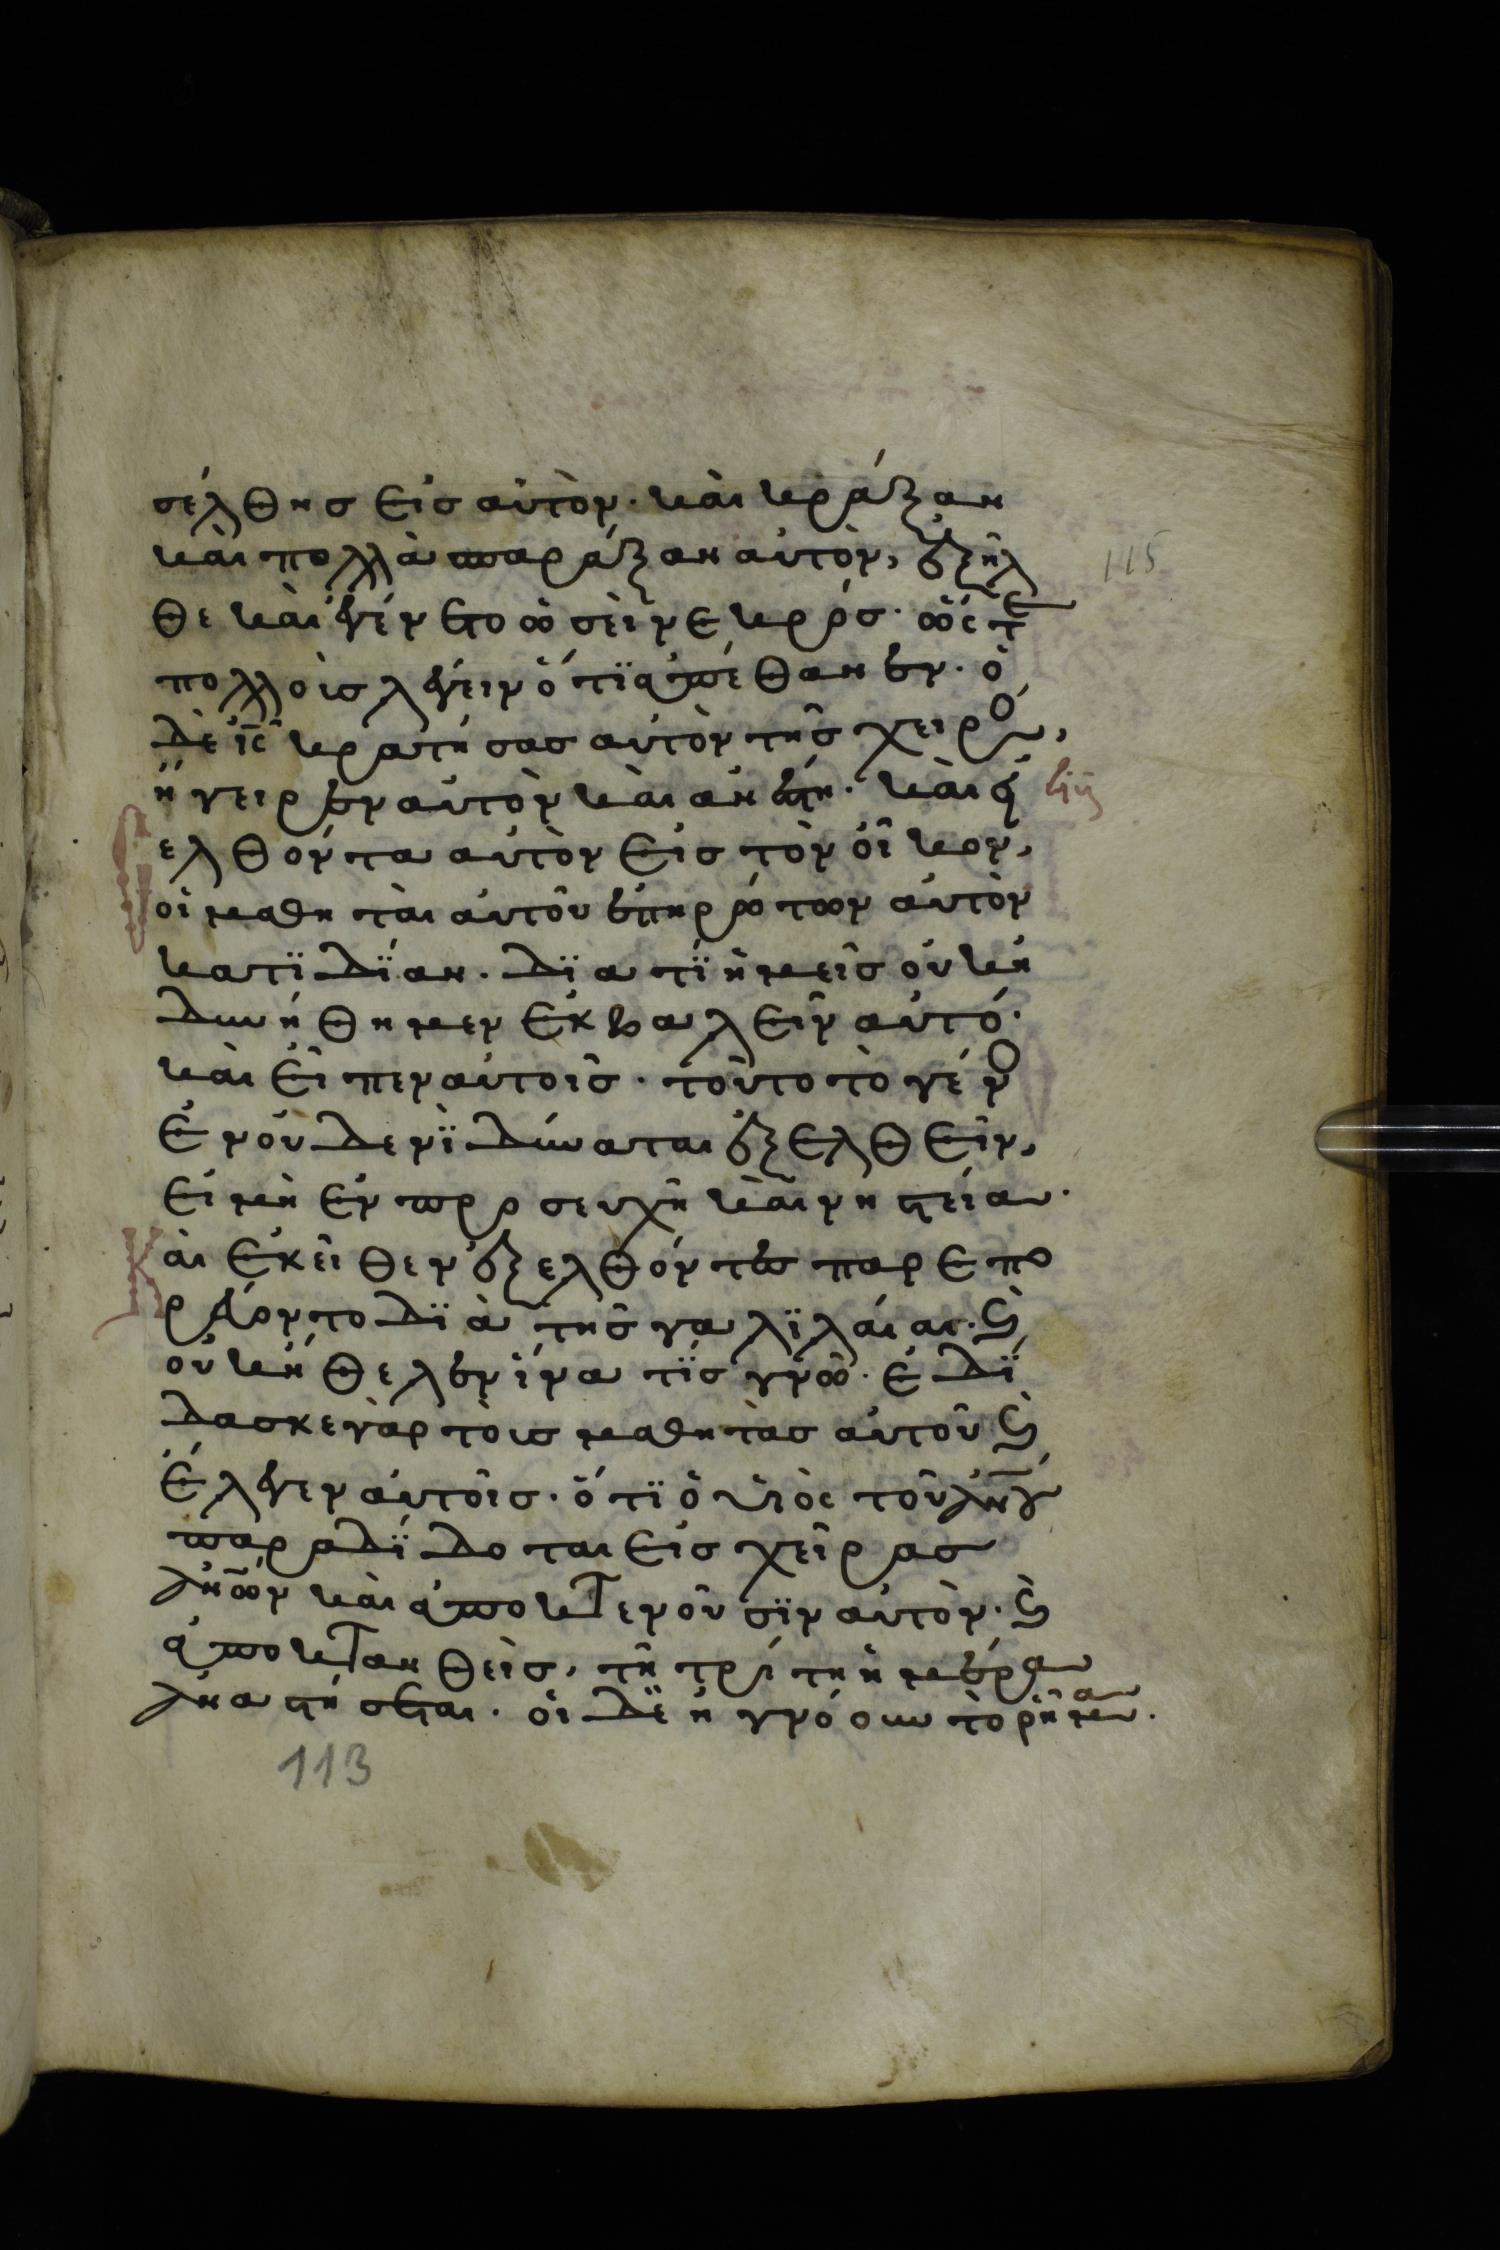 σέλθης εἰς αὐτὸν· καὶ κράξαν
καὶ πολλὰ σπαράξαν αὐτὸν, ἐξῆλ
θε καὶ ἐγένετο ὡσεὶ νεκρός· ὥστε
πολλοὺς λέγειν ὅτϊ ἀπέθανεν· ὁ
δὲ ἰ̅ς̅ κρατήσας αὐτὸν τῆς χειρός,
ἤγειρεν αὐτὸν καὶ ἀνέστη· καὶ εἰσ
ελθόντα αὐτὸν εἰς τὸν οἶκον,
οἱ μαθηταὶ αὐτοῦ ἐπηρώτων αὐτὸν
κατϊδϊαν· δϊατϊ ἡμεῖς οὐκ ἠ
δυνήθημεν ἐκβαλεῖν αὐτό·
καὶ εἶπεν αὐτοῖς· τοῦτο τὸ γένος
ἐν οὐδενὶ δύναται ἐξελθεῖν,
εἰ μὴ ἐν προσευχῆ καὶ νηστεία·
Καὶ ἐκεῖθεν ἐξελθόντες παρεπο
ρεύοντο δϊὰ τῆς γαλϊλαίας· ϗ
οὐκ ἤθελεν ἵνα τϊς γνῶ· ἐδϊ
δασκε γὰρ τοὺς μαθητὰς αὐτοῦ ϗ
ἔλεγεν αὐτοῖς· ὅτϊ ὁ υἱὸς τοῦ ἀν̅ου
παραδϊδοται εἰς χεῖρας
ἀν̅ων καὶ ἀποκτενοῦσϊν αὐτὸν· ϗ
ἀποκτανθεὶς, τῆ τρίτη ἡμέρα
ἀναστήσεται· οἱ δὲ ἠγνόουν τὸ ῥῆμα·
115
113